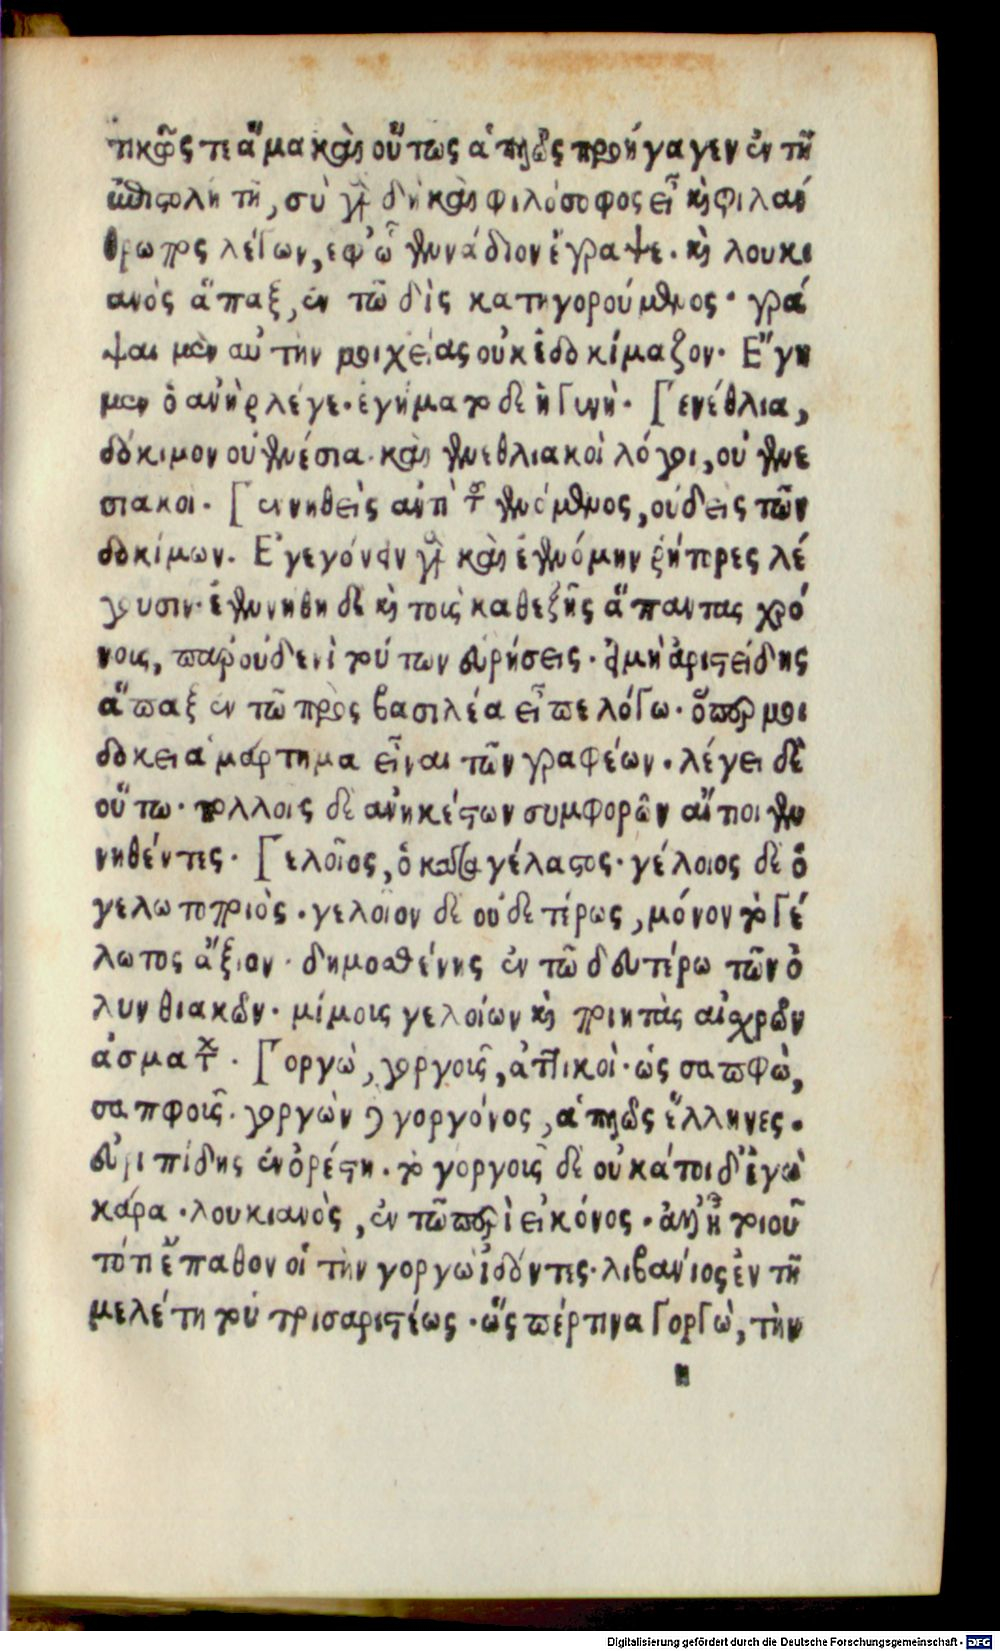 τικῶς τε ἅμα καὶ οὕτως ἀπηδῶς προήγαγεν ἐν τῆ
ἐπιστολῆ τῆ, σὺ γὰρ δὴ καὶ φιλόσοφος εἶ καὶ φιλάν
θρωπος λέγων, ἐφ' ὧ γενάδιον ἔγραψε. καὶ λουκι
ανὸς ἅπαξ, ἐν τῶ δὶς κατηγορούμενος. γρά
ψαι μὲν αὐτὴν μοιχείας οὐκ ἐδοκίμαζον. Ἔγη
μεν ὁ ἀνὴρ λέγε. ἐγήματο δὲ ἡ Γυνή. Γενέθλια,
δόκιμον οὐ γενέσια. καὶ γενεθλιακοὶ λόγοι, οὐ γενε
σιακοι. Γεννηθεὶς ἀντὶ τοῦ γενόμενος, οὐδεὶς τῶν
δοκίμων. Ἐγεγόνειν γὰρ καὶ ἐγενόμην ῥήτορες λέ
γουσιν. ἐγεννήθη δὲ καὶ τοῖς καθεξῆς ἅπαντας χρό
νοις, παρ' οὐδενὶ τούτων εὑρήσεις. εἰ μὴ ἀριστείδης
ἅπαξ ἐν τῶ πρὸς βασιλέα εἶπε λόΓω. ὅπερ μοι
δοκεῖ ἁμάρτημα εἶναι τῶν γραφέων. λέγει δὲ
οὕτω. πολλοῖς δὲ ἀνηκέστων συμφορῶν αἴτιοι γεν
νηθέντες. Γελοῖος, ὁ καταγέλαστος. γέλοιος δὲ ὁ
γελωτοποιός. γελοῖον δὲ οὐδετέρως, μόνον τὸ Γέ
λωτος ἄξιον. δημοσθένης ἐν τῶ δευτέρω τῶν ὀ
λυνθιακῶν. μίμοις γελοίων καὶ ποιητὰς αἰσχρῶν
ἀσμάτων. Γοργὼ, γοργοῖς, ἀττικοὶ. ὡς σαπφὼ,
σαπφοῖς. γοργὼν καὶ γοργόνος, ἀπηδῶς ἕλληνες.
εὐριπίδης ἐν ὀρέστη. τὸ γοργοῖς δὲ οὐ κάτοιδ' ἐγὼ
κάρα. λουκιανὸς, ἐν τῶ περὶ εἰκόνος. ἀντὶ τοιοῦ
τό τι ἔπαθον οἱ τὴν γοργὼ ἰδόντες. λιβανίος ἐν τῆ
μελέτη τοῦ τρισαριστέως. ὥσπέρ τινα ΓορΓὼ, τὴν
η
Digitalisierung gefördert durch die Deutsche Forschungsgemeinschaft - DFG